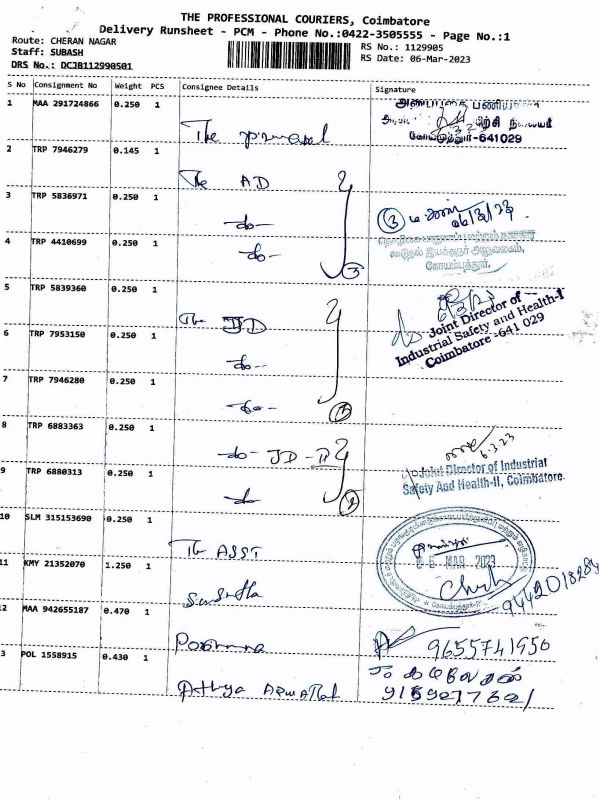 THE PROFESSIONAL COURIERS, Coimbatore
Delivery Runsheet - PCM - Phone No.:0422-3505555 - Page No.:1
Route: CHERAN NAGAR
Staff: SUBASH
DRS No.: DCJB112990501
RS No.: 1129905
RS Date: 06-Mar-2023
S No Consignment No Weight PCS Consignee Details Signature
1 MAA 291724866 0.250 1
The principal
கோயமுத்தூர்-641029
2 TRP 7946279 0.145 1
The AD
3 TRP 5836971 0.250 1
-do-
3
06/3/23
4 TRP 4410699 0.250 1
-do-
3
கூடுதல் இயக்குநர் அலுவலகம்,
கோயம்புத்தூர்.
5 TRP 5839360 0.250 1
The JD
Joint Director of
Industrial Safety and Health-I
Coimbatore -641 029
6 TRP 7953150 0.250 1
-do-
7 TRP 7946280 0.250 1
-do-
8 TRP 6883363 0.250 1
-do- JD-II
6.3.23
Joint Director of Industrial
Safety And Health-II, Coimbatore
9 TRP 6880313 0.250 1
10 SLM 315153690 0.250 1
The ASST
6 MAR 2023
11 KMY 21352070 1.250 1
9442018284
12 MAA 942655187 0.470 1
Poornima
9655741950
3 POL 1558915 0.430 1